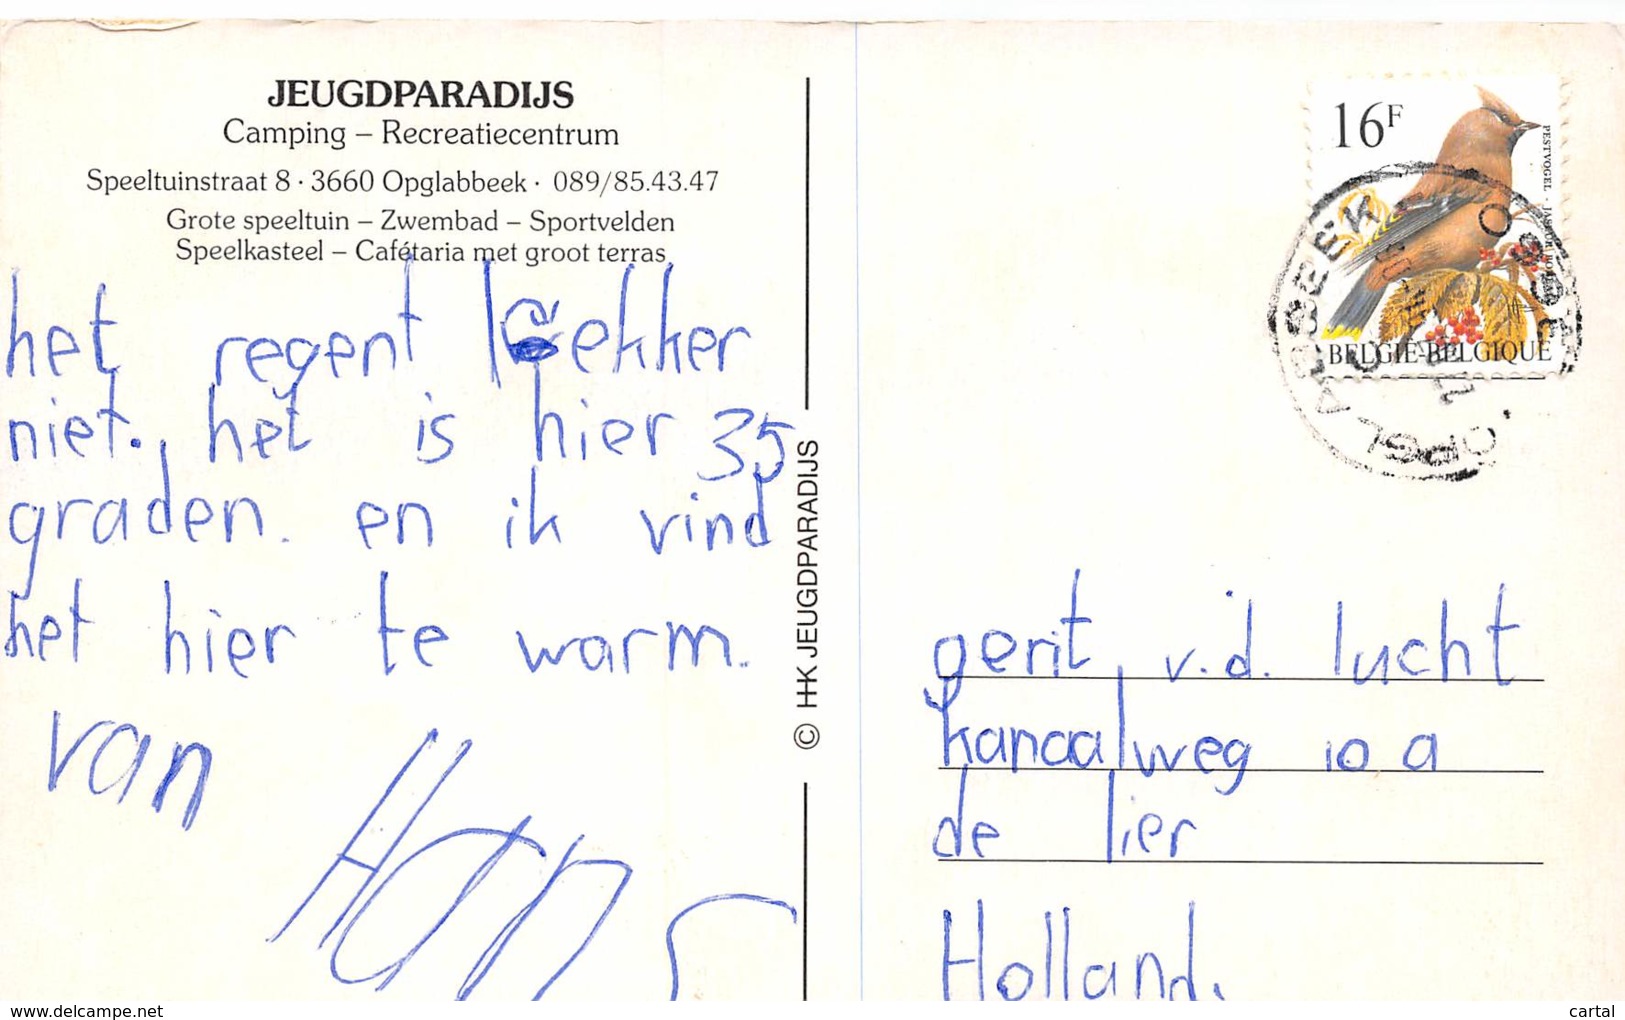 JEUGDPARADIJS
Camping – Recreatiecentrum
Speeltuinstraat 8 · 3660 Opglabbeek · 089/85.43.47
Grote speeltuin – Zwembad – Sportvelden
Speelkasteel – Cafétaria met groot terras
het regent lekker
niet., het is hier 35
graden. en ik vind
het hier te warm.
van
Hans
© HK JEUGDPARADIJS
16F
PESTVOGEL
BELGIE-BELGIQUE
OPGLABBEEK
gerit v.d. lucht
kanaalweg 10 a
de lier
Holland.
www.delcampe.net
cartal